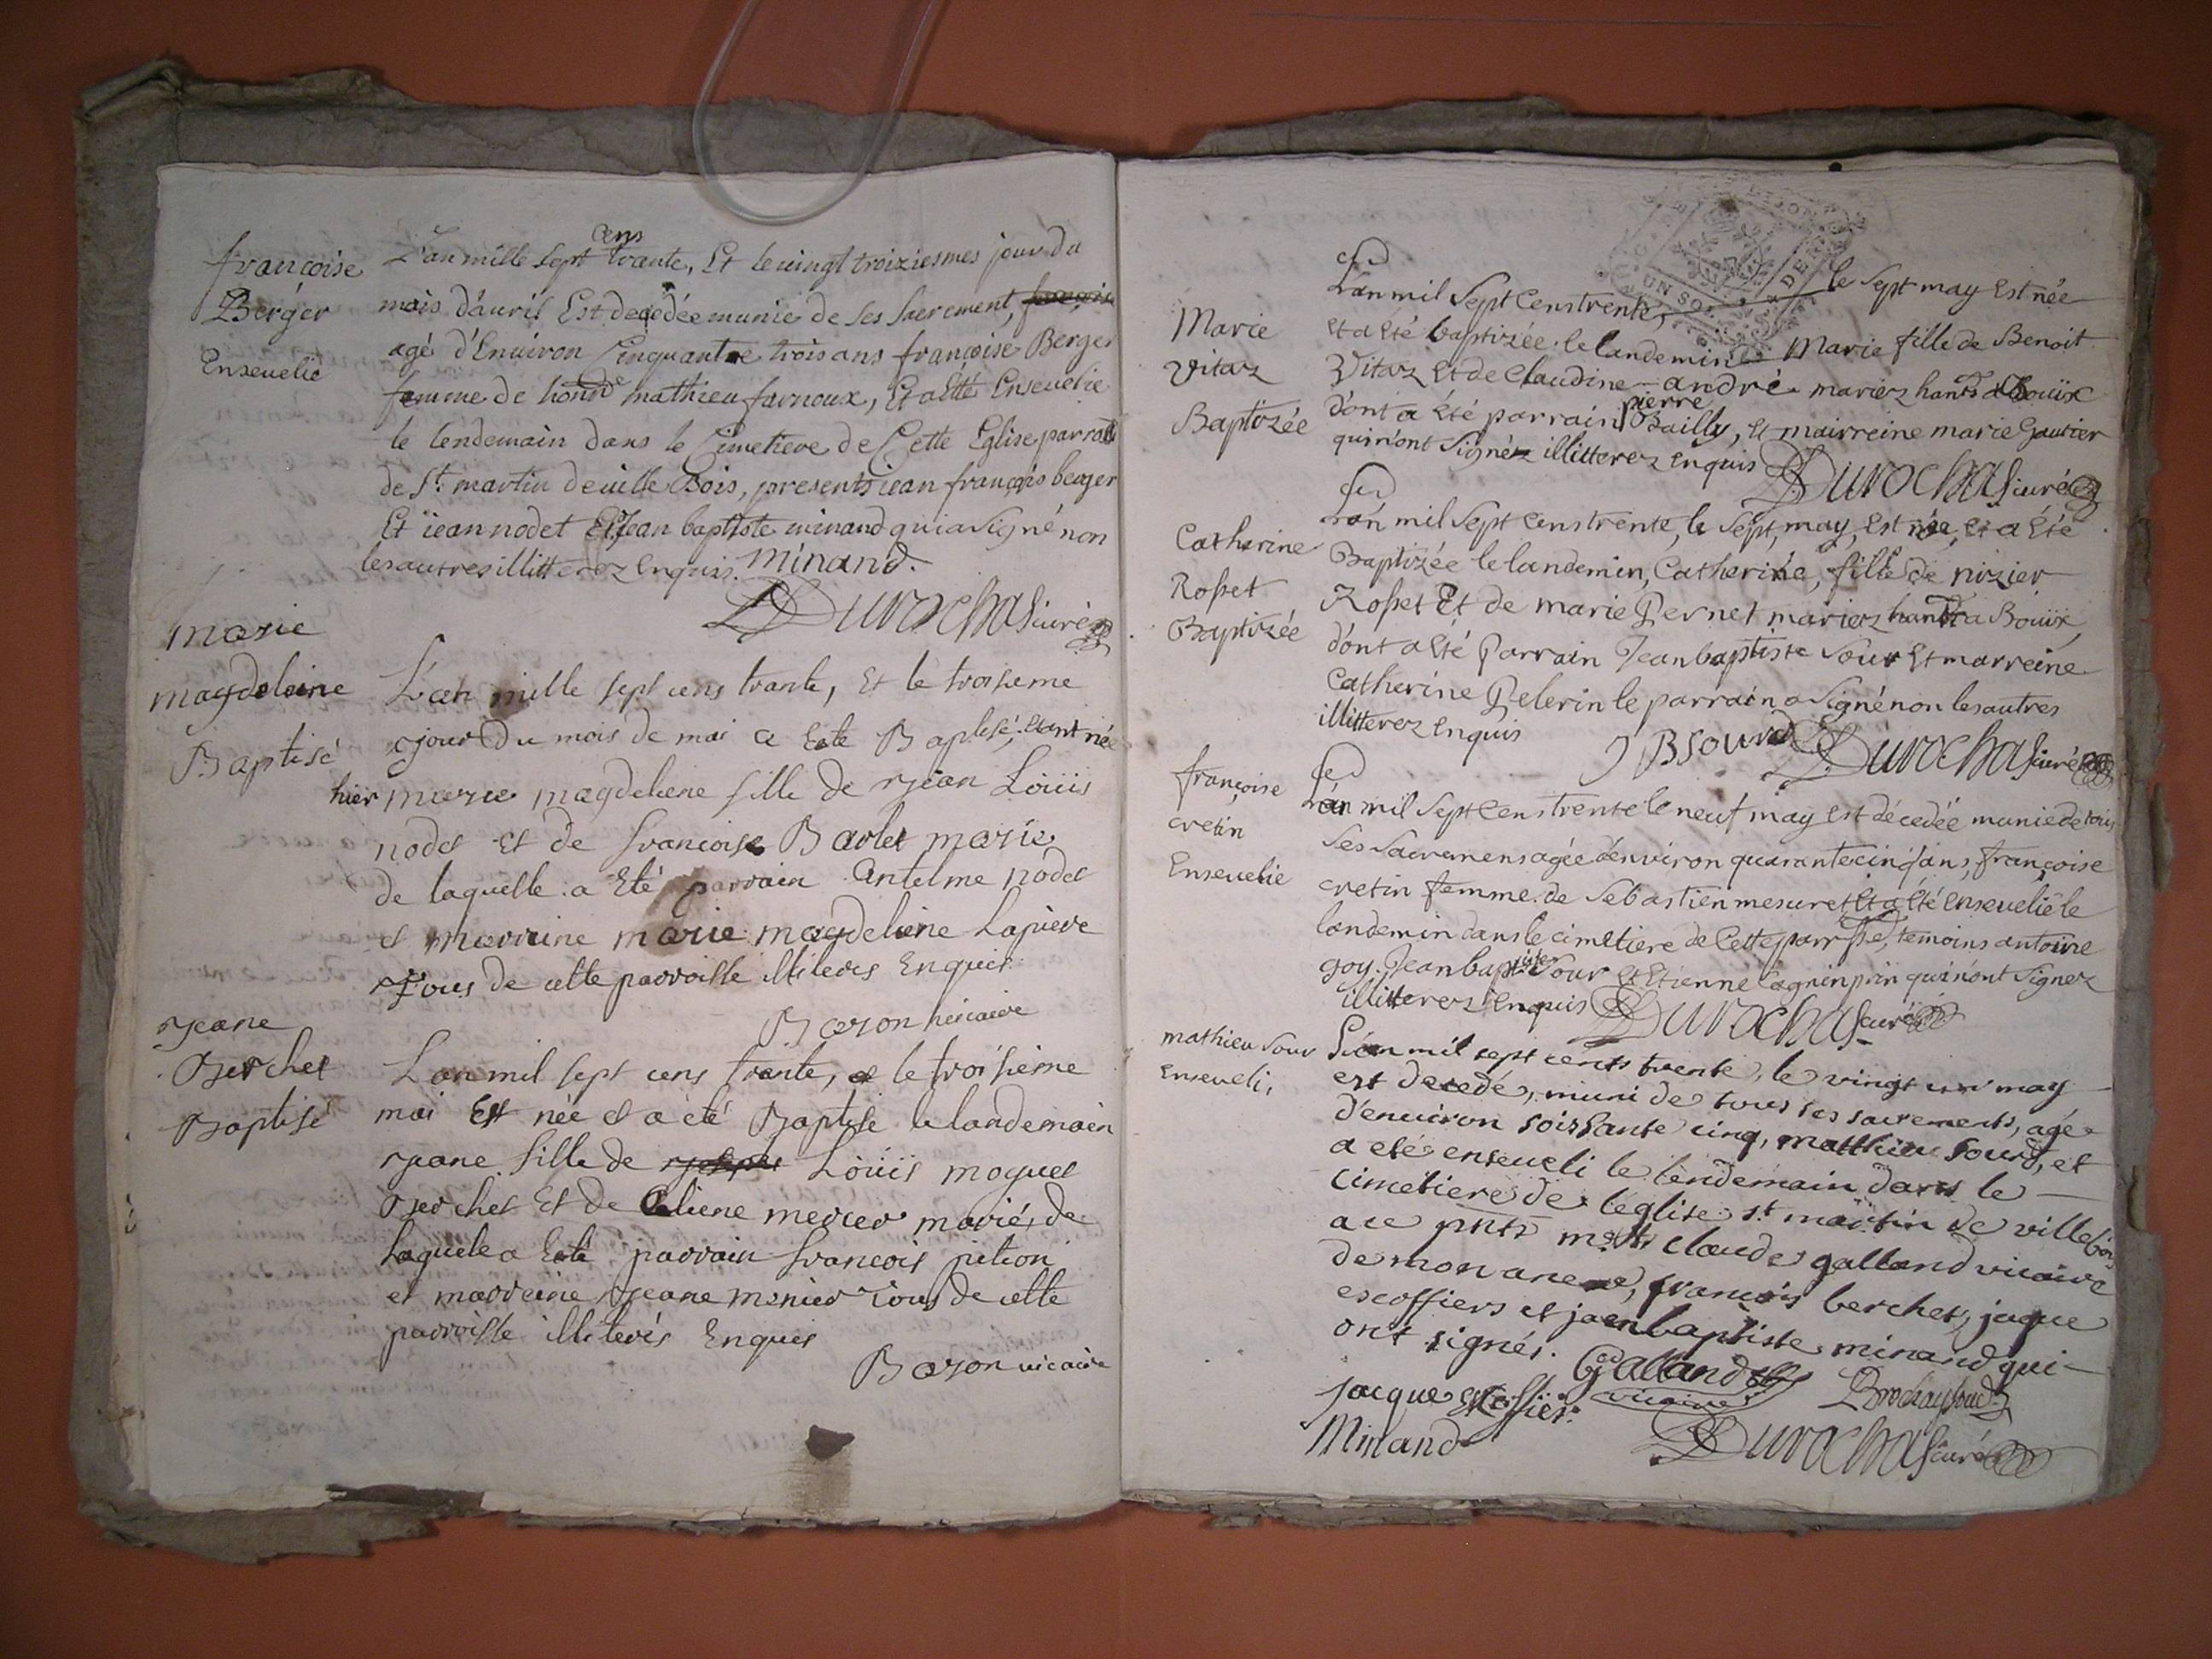 françoise
Berger
Enseuelie
L'an mille sept cens trante, Et le uingt troiziesmes jour du
mois d'auril Est decedée munie de ses sacrement,
agé d'Enuiron Cinquante trois ans françoise Berger
femme de honble mathieu farnoux, Et a Etté Enseuelie
le lendemain dans le Cimetiere de Cette Eglise parroll
de St. martin deuille Bois, presents iean françois berger
Et iean nodet Et Jean baptiste minand qui a signé non
les autres illitterez Enquis. Minand.
Durochat curé
marie
magdeleine
Baptisé
L'an mille sept cens trante, Et le troisieme
jour Du mois de mai a Esté Baptisé, Etant née
hier marie magdeleine fille de jean Loüis
nodet Et de francoise Barlet marié
de laquelle a Eté parrain Antelme nodet
et marraine marie magdeleine Lapierre
Tous de cette parroisse illiterés Enquis
Bozon uicaire
jeane
Berchet
Baptisé
L'an mil sept cens trante, et le troisieme
mai Est née et a eté Baptisé le landemain
jeane fille de Loüis moguet
Berchet Et de Celiene mercier mariés de
laquele a Esté parrain francois pition
et marreine jeane monier Tous de cette
parroisse illiterés Enquis
Bozon uicaire
UN SOL
Marie
Vitaz
Baptizée
L'an mil Sept Cens trente, le Sept may Est née
Et a Eté baptizée le landemin Marie fille de Benoit
Vitaz Et de Claudine andré mariez hants a Bouïx
dont a Eté parrain pierre Bailly, Et mairreine marie Gautier
qui n'ont Signéz illitterez Enquis Durochat curé
Catherine
Rosset
Baptizée
L'an mil Sept Cens trente, le Sept, may, Est née, Et a Eté
Baptizée le landemin, Catherine, fille de nizier
Rosset Et de marie Pernet mariez hants a Bouïx,
dont a Eté Parrain Jean baptiste Sour Et marreine
Catherine Pelerin le parrain a Signé non les autres
illitterez Enquis J B Sourd Durochat curé
françoise
cretin
Enseuelie
L'an mil Sept Cens trente le neuf may Est décedée munie de tous
Ses Sacremens agée d'environ quarante cinq ans, françoise
cretin femme de Sebastien mesuret Et a Eté enseuelie le
landemin dans le cimetiere de Cette parrsse, temoins antoine
goy, Jean baptiste Sour et Etienne qui n'ont Signez
illitterez Enquis Durochat curé
mathieu Sour
Enseueli,
L'an mil sept cents trente, le vingt un may
est decedé, muni de tous ses sacrements, agé
d'enuiron soissante cinq, matthieu Sourd, et
a eté enseueli le lendemain dans le
cimetiere de l'eglise st martin de villebois
a ce pnts mre claude galland vicaire
de mon francois berchet, jaque
escoffiers et jaenbaptiste minand qui
ont signés. Galland vicaire
jacque Escoffier
Minand
Durochat curé